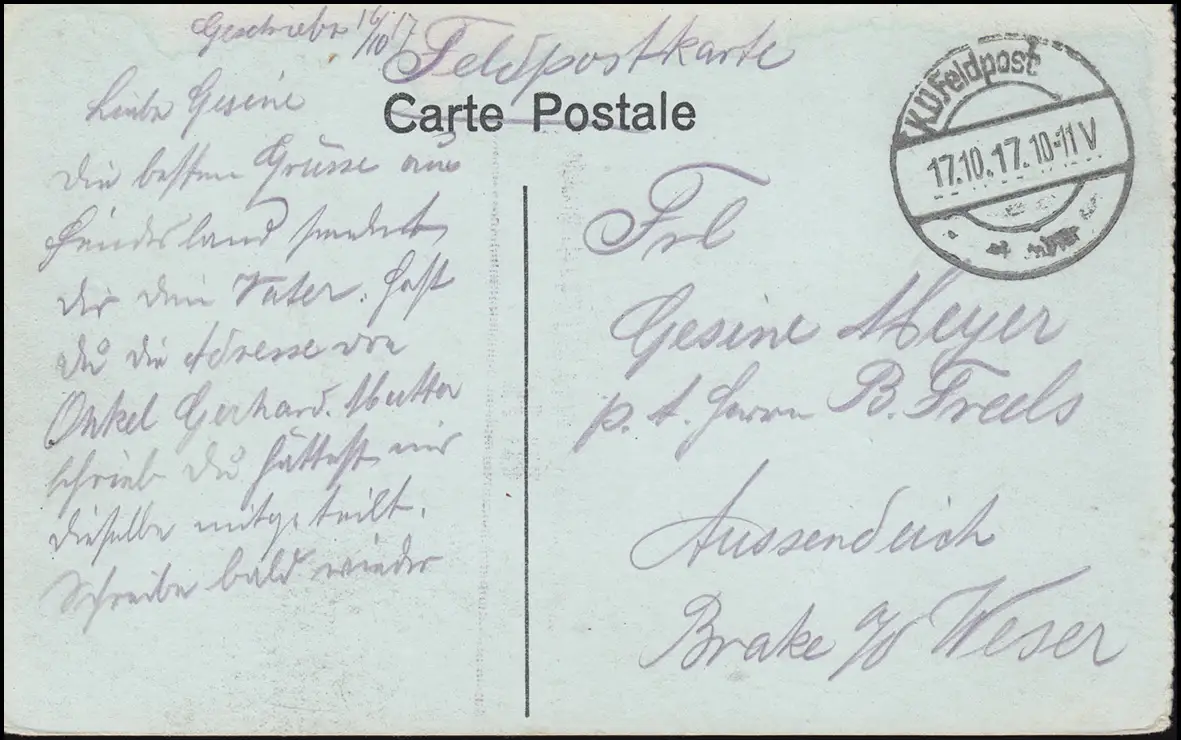 Geschrieben 16/10 17
Feldpostkarte
Carte Postale
K.D. Feldpost
17.10.17. 10-11 V
Liebe Gesine
Die besten Grüsse aus
Feindesland sendet
dir dein Vater. Hast
du die Adresse von
Onkel Gerhard. Mutter
schrieb du hättest mir
dieselbe mitgeteilt.
Schreibe bald wieder
Frl
Gesine Meyer
p. A. Herrn B. Freels
Aussendeich
Brake a/d Weser